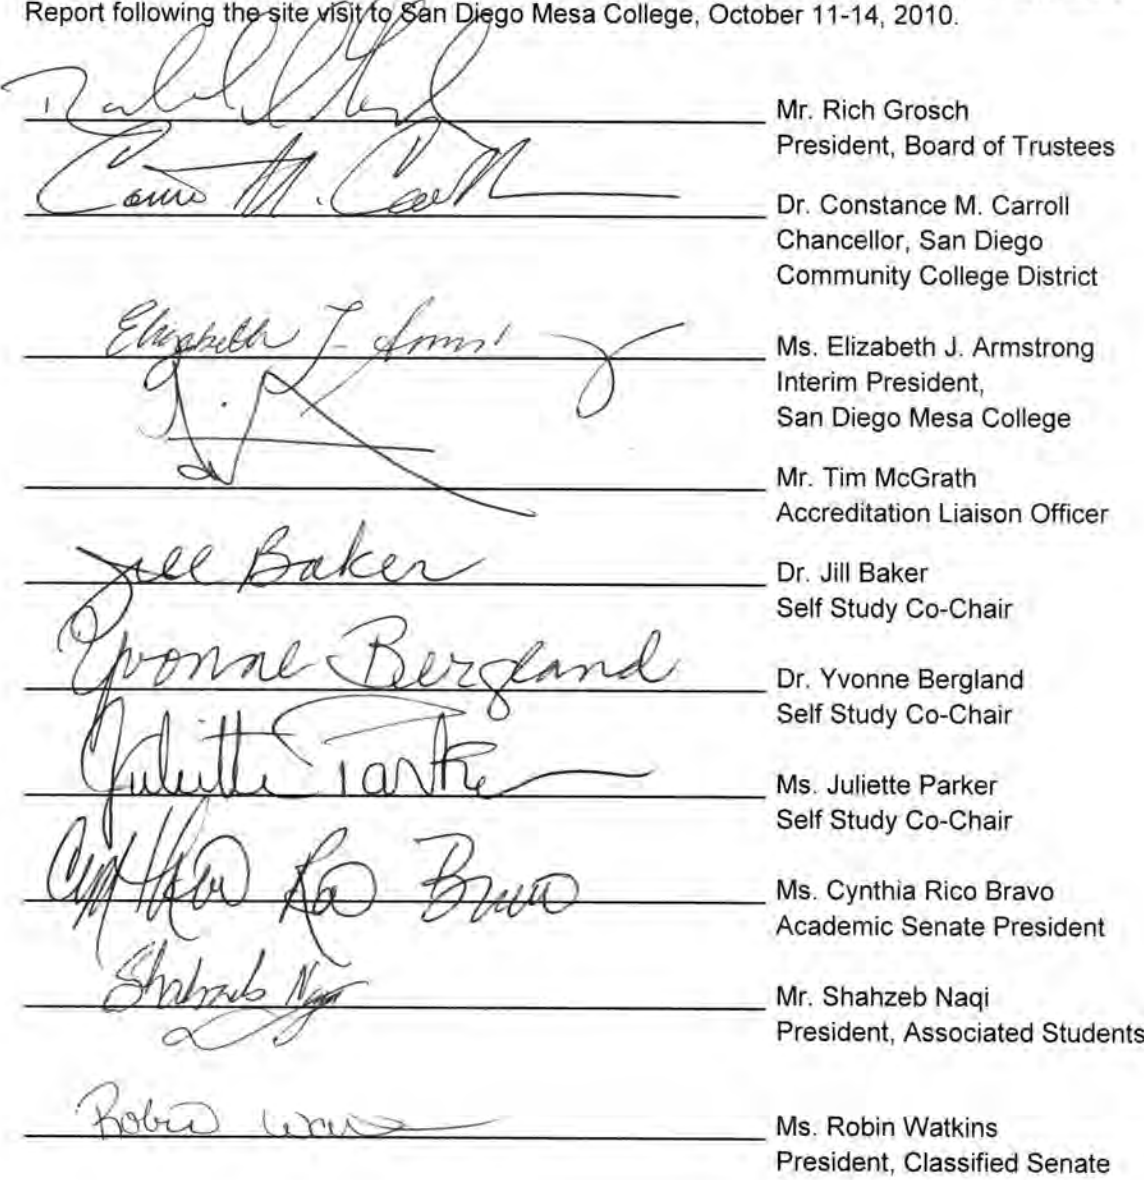 Report following the site visit to San Diego Mesa College, October 11-14, 2010.
Mr. Rich Grosch
President, Board of Trustees
Constance M. Carroll
Dr. Constance M. Carroll
Chancellor, San Diego
Community College District
Elizabeth J. Armstrong
Ms. Elizabeth J. Armstrong
Interim President,
San Diego Mesa College
Mr. Tim McGrath
Accreditation Liaison Officer
Jill Baker
Dr. Jill Baker
Self Study Co-Chair
Yvonne Bergland
Dr. Yvonne Bergland
Self Study Co-Chair
Juliette Parker
Ms. Juliette Parker
Self Study Co-Chair
Cynthia Rico Bravo
Ms. Cynthia Rico Bravo
Academic Senate President
Shahzeb Naqi
Mr. Shahzeb Naqi
President, Associated Students
Robin
Ms. Robin Watkins
President, Classified Senate